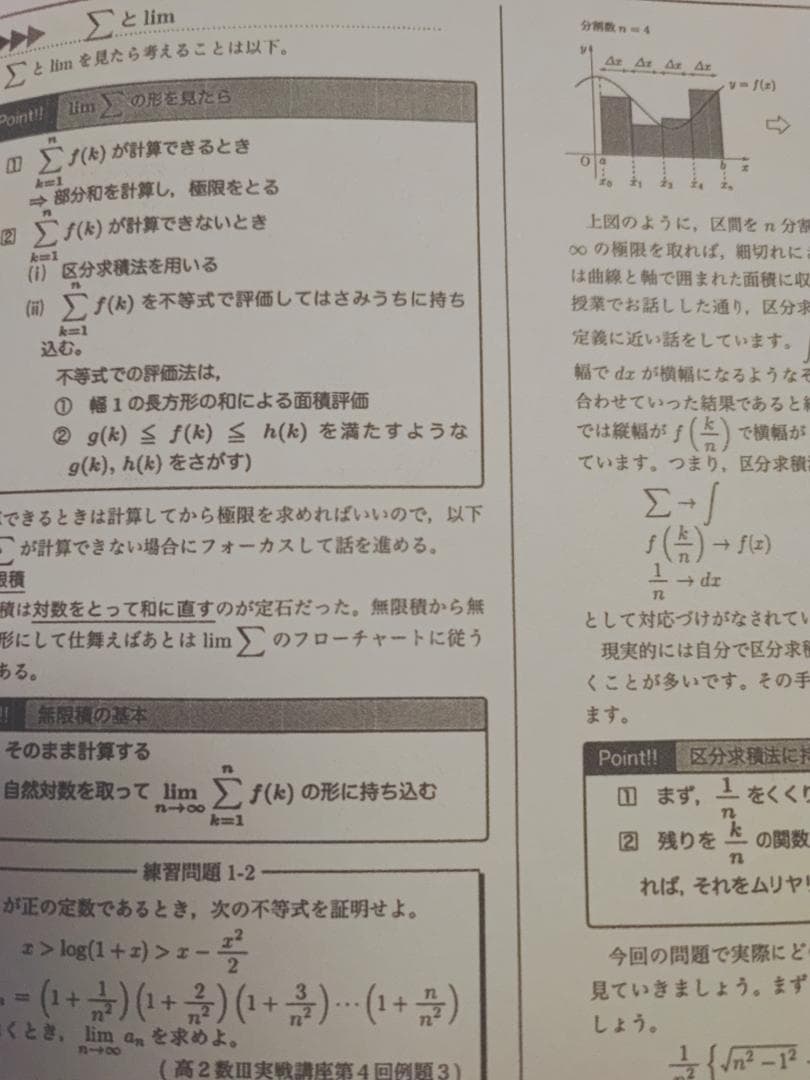 ∑とlim
∑とlimを見たら考えることは以下。
Point!! lim∑の形を見たら
1 ∑_{k=1}^{n} f(k)が計算できるとき
⇒部分和を計算し，極限をとる
2 ∑_{k=1}^{n} f(k)が計算できないとき
(i) 区分求積法を用いる
(ii) ∑_{k=1}^{n} f(k)を不等式で評価してはさみうちに持ち
込む。
不等式での評価法は，
① 幅1の長方形の和による面積評価
② g(k) ≦ f(k) ≦ h(k) を満たすような
g(k), h(k)をさがす)
できるときは計算してから極限を求めればいいので，以下
∑が計算できない場合にフォーカスして話を進める。
限積
積は対数をとって和に直すのが定石だった。無限積から無
形にして仕舞えばあとはlim∑のフローチャートに従う
ある。
!! 無限積の基本
そのまま計算する
自然対数を取って lim_{n→∞} ∑_{k=1}^{n} f(k) の形に持ち込む
練習問題 1-2
が正の定数であるとき，次の不等式を証明せよ。
x > log(1+x) > x − x²/2
n = (1 + 1/n²)(1 + 2/n²)(1 + 3/n²)⋯(1 + n/n²)
くとき，lim_{n→∞} aₙを求めよ。
(高2数Ⅲ実戦講座第4回例題3)
分割数 n = 4
y
Δx Δx Δx Δx
y = f(x)
O a b x
x₀ x₁ x₃ x₄ xₙ
上図のように，区間をn分割
∞の極限を取れば，細切れに
は曲線と軸で囲まれた面積に収
授業でお話しした通り，区分求
定義に近い話をしています。∫
幅でdxが横幅になるようなそ
合わせていった結果であると
では縦幅が f(k/n) で横幅が
ています。つまり，区分求積
∑ → ∫
f(k/n) → f(x)
1/n → dx
として対応づけがなされてい
現実的には自分で区分求積
くことが多いです。その手
ます。
Point!! 区分求積法に持
1 まず，1/n をくくり
2 残りを k/n の関数
れば，それをムリヤリ
今回の問題で実際にど
見ていきましょう。まず
しょう。
1/n² {√(n² − 1²)